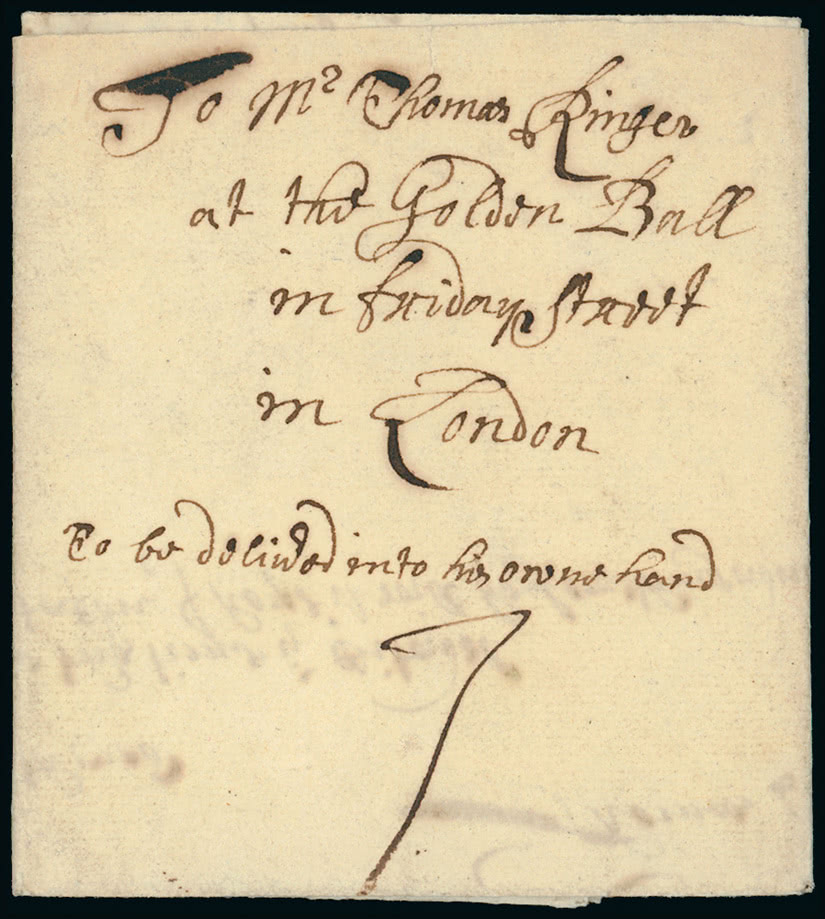 To Mr Thomas Kinger
at the Golden Ball
in friday street
in London
To be delivred into his owne hand